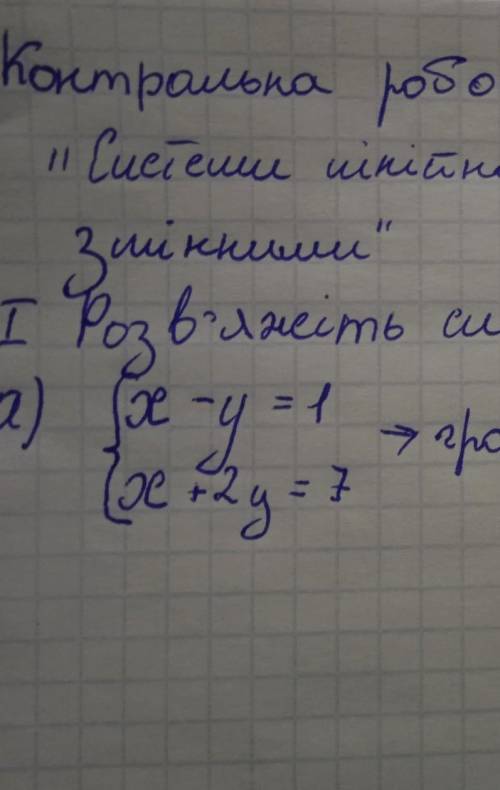 Контрольна робо
"Системи лінійн
змінними"
I Розв'яжіть си
а) { x - y = 1
{ x + 2y = 7 → гра